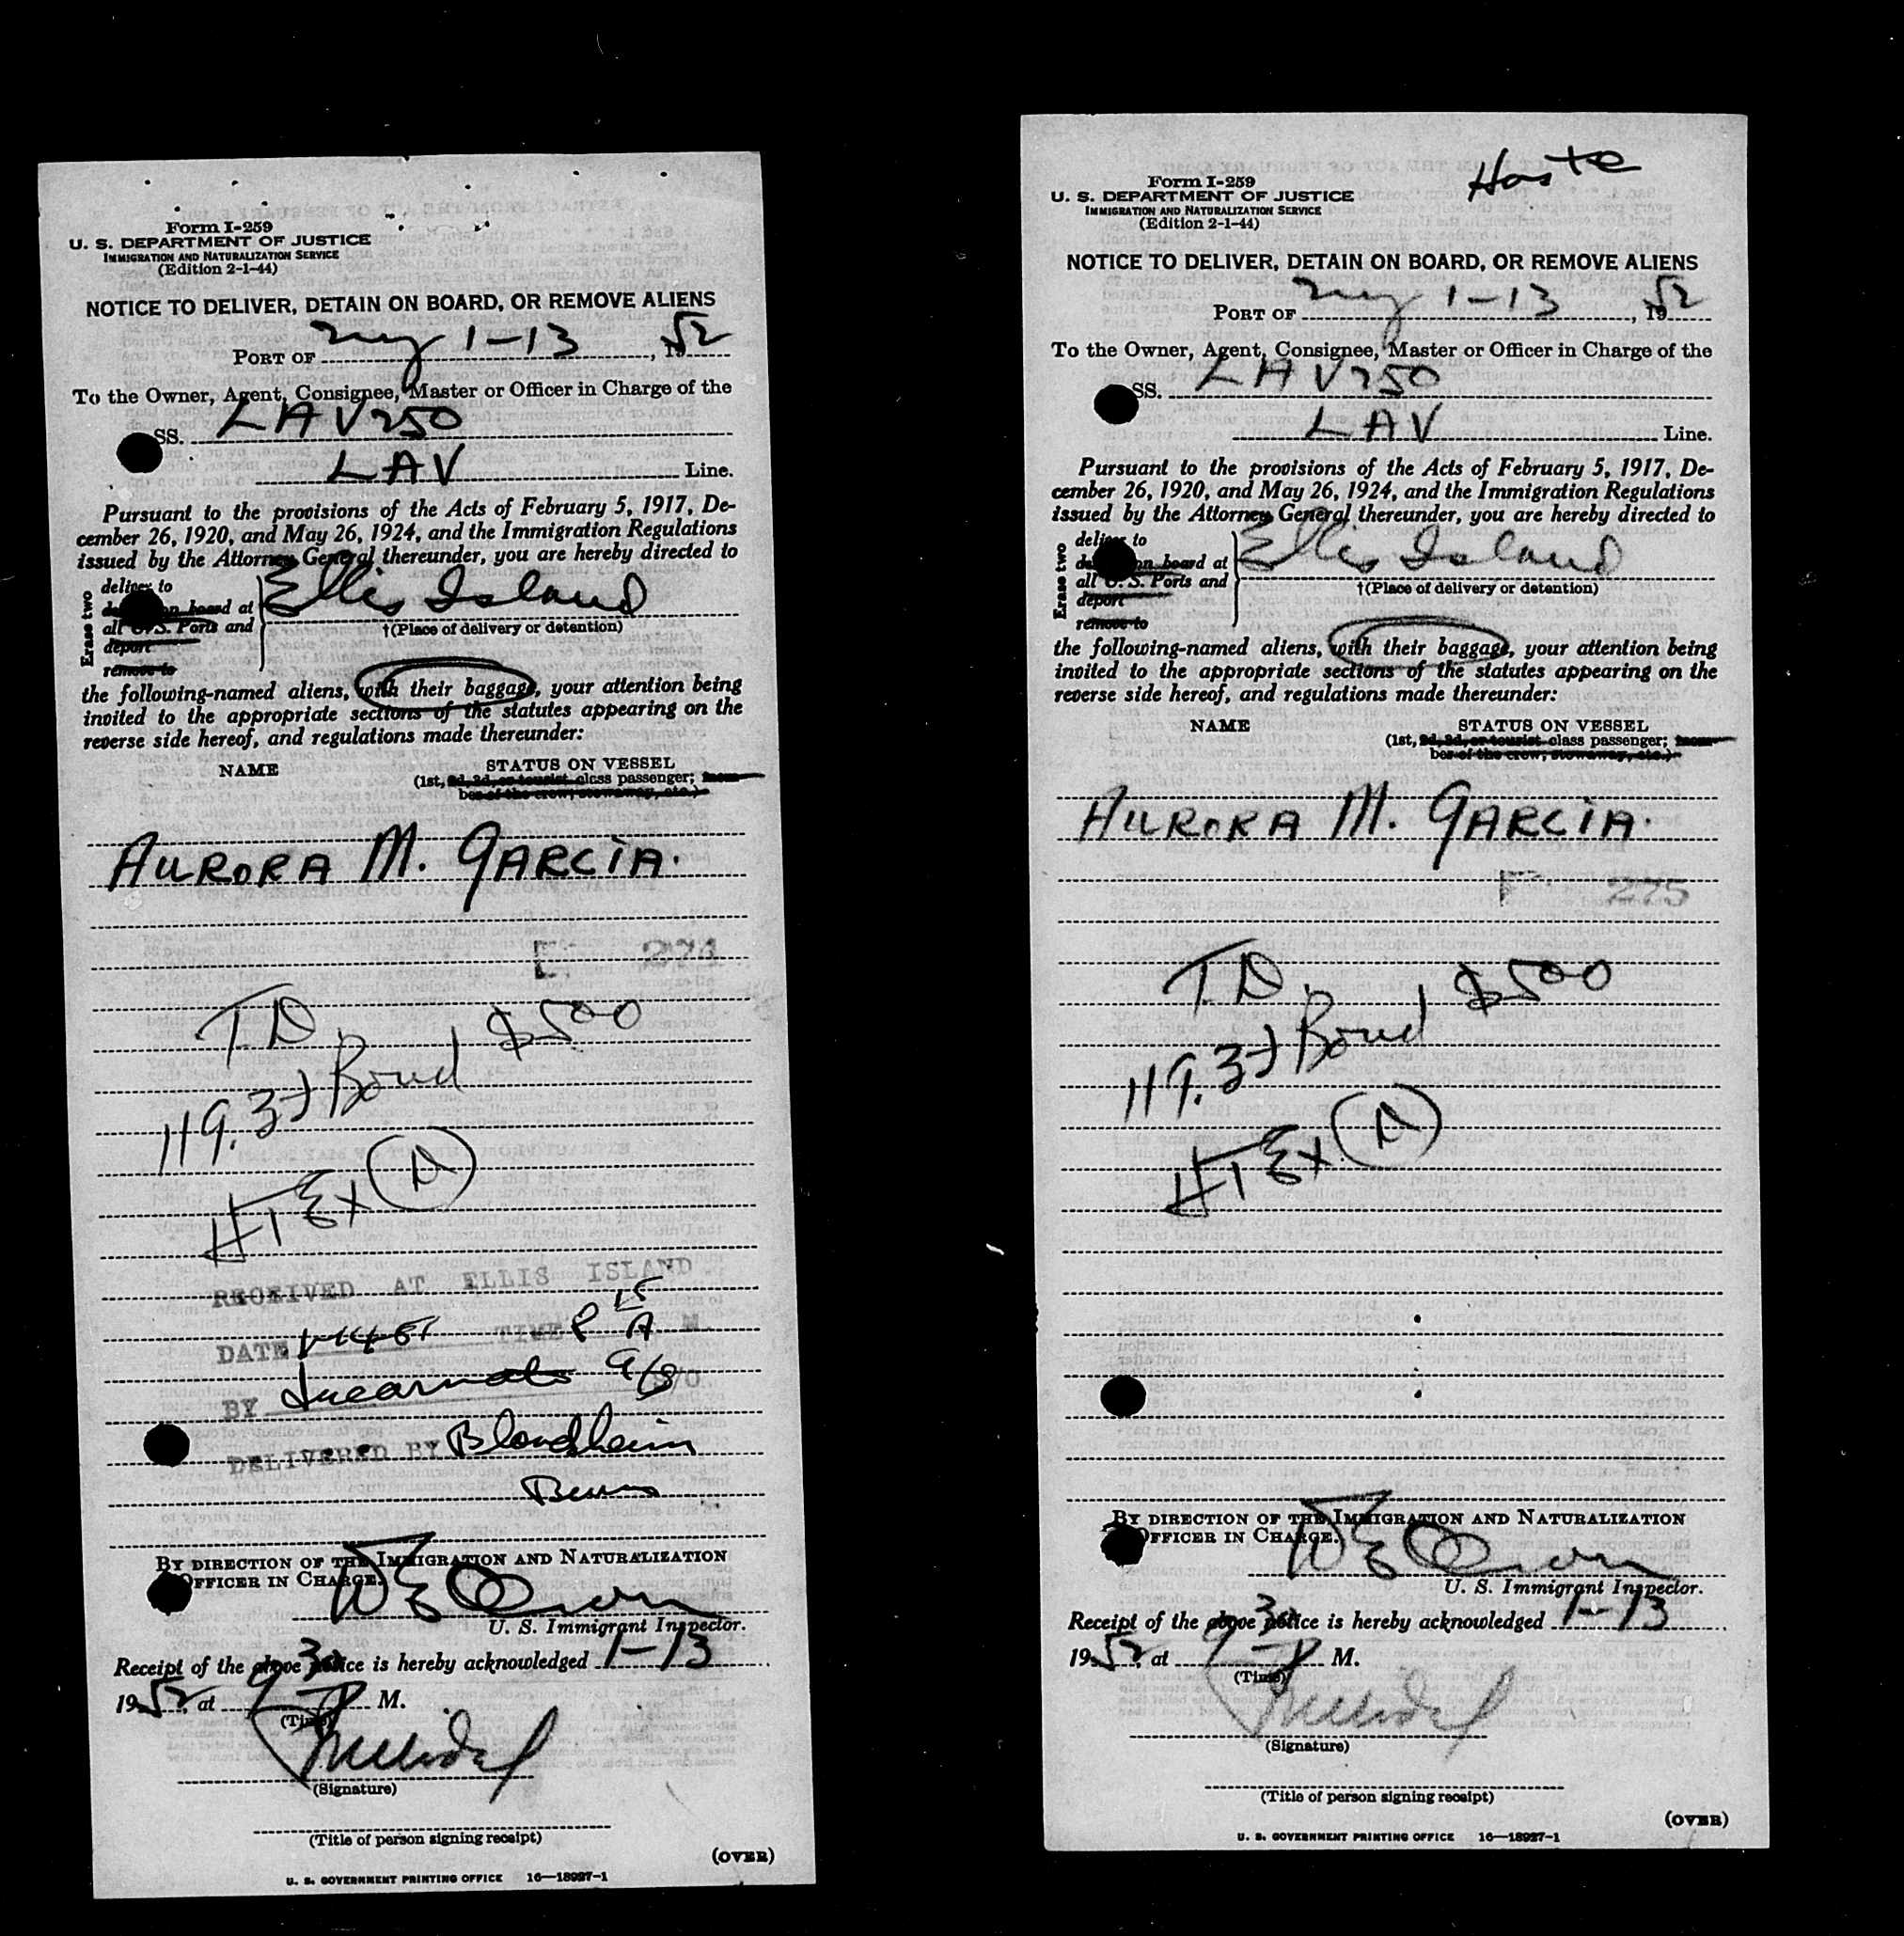 Form I-259
U. S. DEPARTMENT OF JUSTICE
IMMIGRATION AND NATURALIZATION SERVICE
(Edition 2-1-44)
NOTICE TO DELIVER, DETAIN ON BOARD, OR REMOVE ALIENS
PORT OF NY 1-13, 1952
To the Owner, Agent, Consignee, Master or Officer in Charge of the
SS. LAV 250
LAV Line.
Pursuant to the provisions of the Acts of February 5, 1917, De-
cember 26, 1920, and May 26, 1924, and the Immigration Regulations
issued by the Attorney General thereunder, you are hereby directed to
Erase two
deliver to
on board at
all U. S. Ports and
deport
remove to
Ellis Island
†(Place of delivery or detention)
the following-named aliens, with their baggage, your attention being
invited to the appropriate sections of the statutes appearing on the
reverse side hereof, and regulations made thereunder:
NAME STATUS ON VESSEL
(1st, 2d, 3d, or tourist class passenger; mem-
ber of the crew, stowaway, etc.)
AURORA M. GARCIA.
274
T.D.
119.3t Bond $500
Ex
RECEIVED AT ELLIS ISLAND
DATE TIME 8 15 A M.
BY
DELIVERED BY Blondheim
BY DIRECTION OF THE IMMIGRATION AND NATURALIZATION
OFFICER IN CHARGE.
U. S. Immigrant Inspector.
Receipt of the above notice is hereby acknowledged 1-13
1952, at 9 30 P M.
(Time)
(Signature)
(Title of person signing receipt)
(OVER)
U. S. GOVERNMENT PRINTING OFFICE 16—18927-1
Haste
Form I-259
U. S. DEPARTMENT OF JUSTICE
IMMIGRATION AND NATURALIZATION SERVICE
(Edition 2-1-44)
NOTICE TO DELIVER, DETAIN ON BOARD, OR REMOVE ALIENS
PORT OF NY 1-13, 1952
To the Owner, Agent, Consignee, Master or Officer in Charge of the
SS. LAV 250
LAV Line.
Pursuant to the provisions of the Acts of February 5, 1917, De-
cember 26, 1920, and May 26, 1924, and the Immigration Regulations
issued by the Attorney General thereunder, you are hereby directed to
Erase two
deliver to
on board at
all U. S. Ports and
deport
remove to
Ellis Island
†(Place of delivery or detention)
the following-named aliens, with their baggage, your attention being
invited to the appropriate sections of the statutes appearing on the
reverse side hereof, and regulations made thereunder:
NAME STATUS ON VESSEL
(1st, 2d, 3d, or tourist class passenger; mem-
ber of the crew, stowaway, etc.)
AURORA M. GARCIA.
275
T.D.
119.3t Bond $500
Ex
BY DIRECTION OF THE IMMIGRATION AND NATURALIZATION
OFFICER IN CHARGE.
U. S. Immigrant Inspector.
Receipt of the above notice is hereby acknowledged 1-13
1952, at 9 30 P M.
(Time)
(Signature)
(Title of person signing receipt)
(OVER)
U. S. GOVERNMENT PRINTING OFFICE 16—18927-1